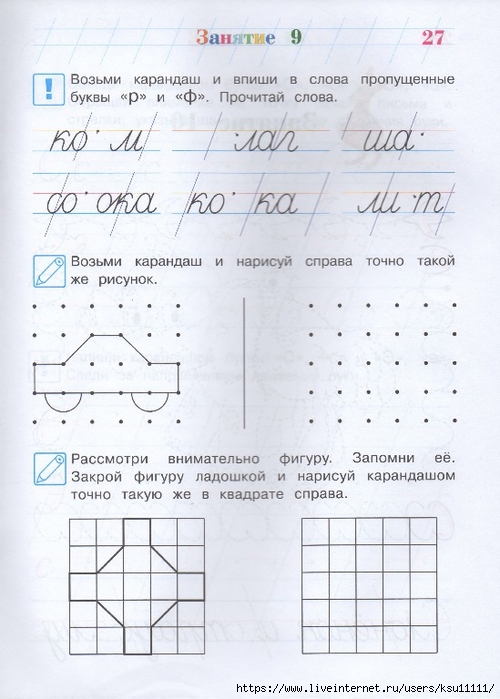 Занятие 9 27
! Возьми карандаш и впиши в слова пропущенные
буквы «р» и «ф». Прочитай слова.
ко м лаг ша
со ока ко ка ли т
Возьми карандаш и нарисуй справа точно такой
же рисунок.
Рассмотри внимательно фигуру. Запомни её.
Закрой фигуру ладошкой и нарисуй карандашом
точно такую же в квадрате справа.
https://www.liveinternet.ru/users/ksu11111/